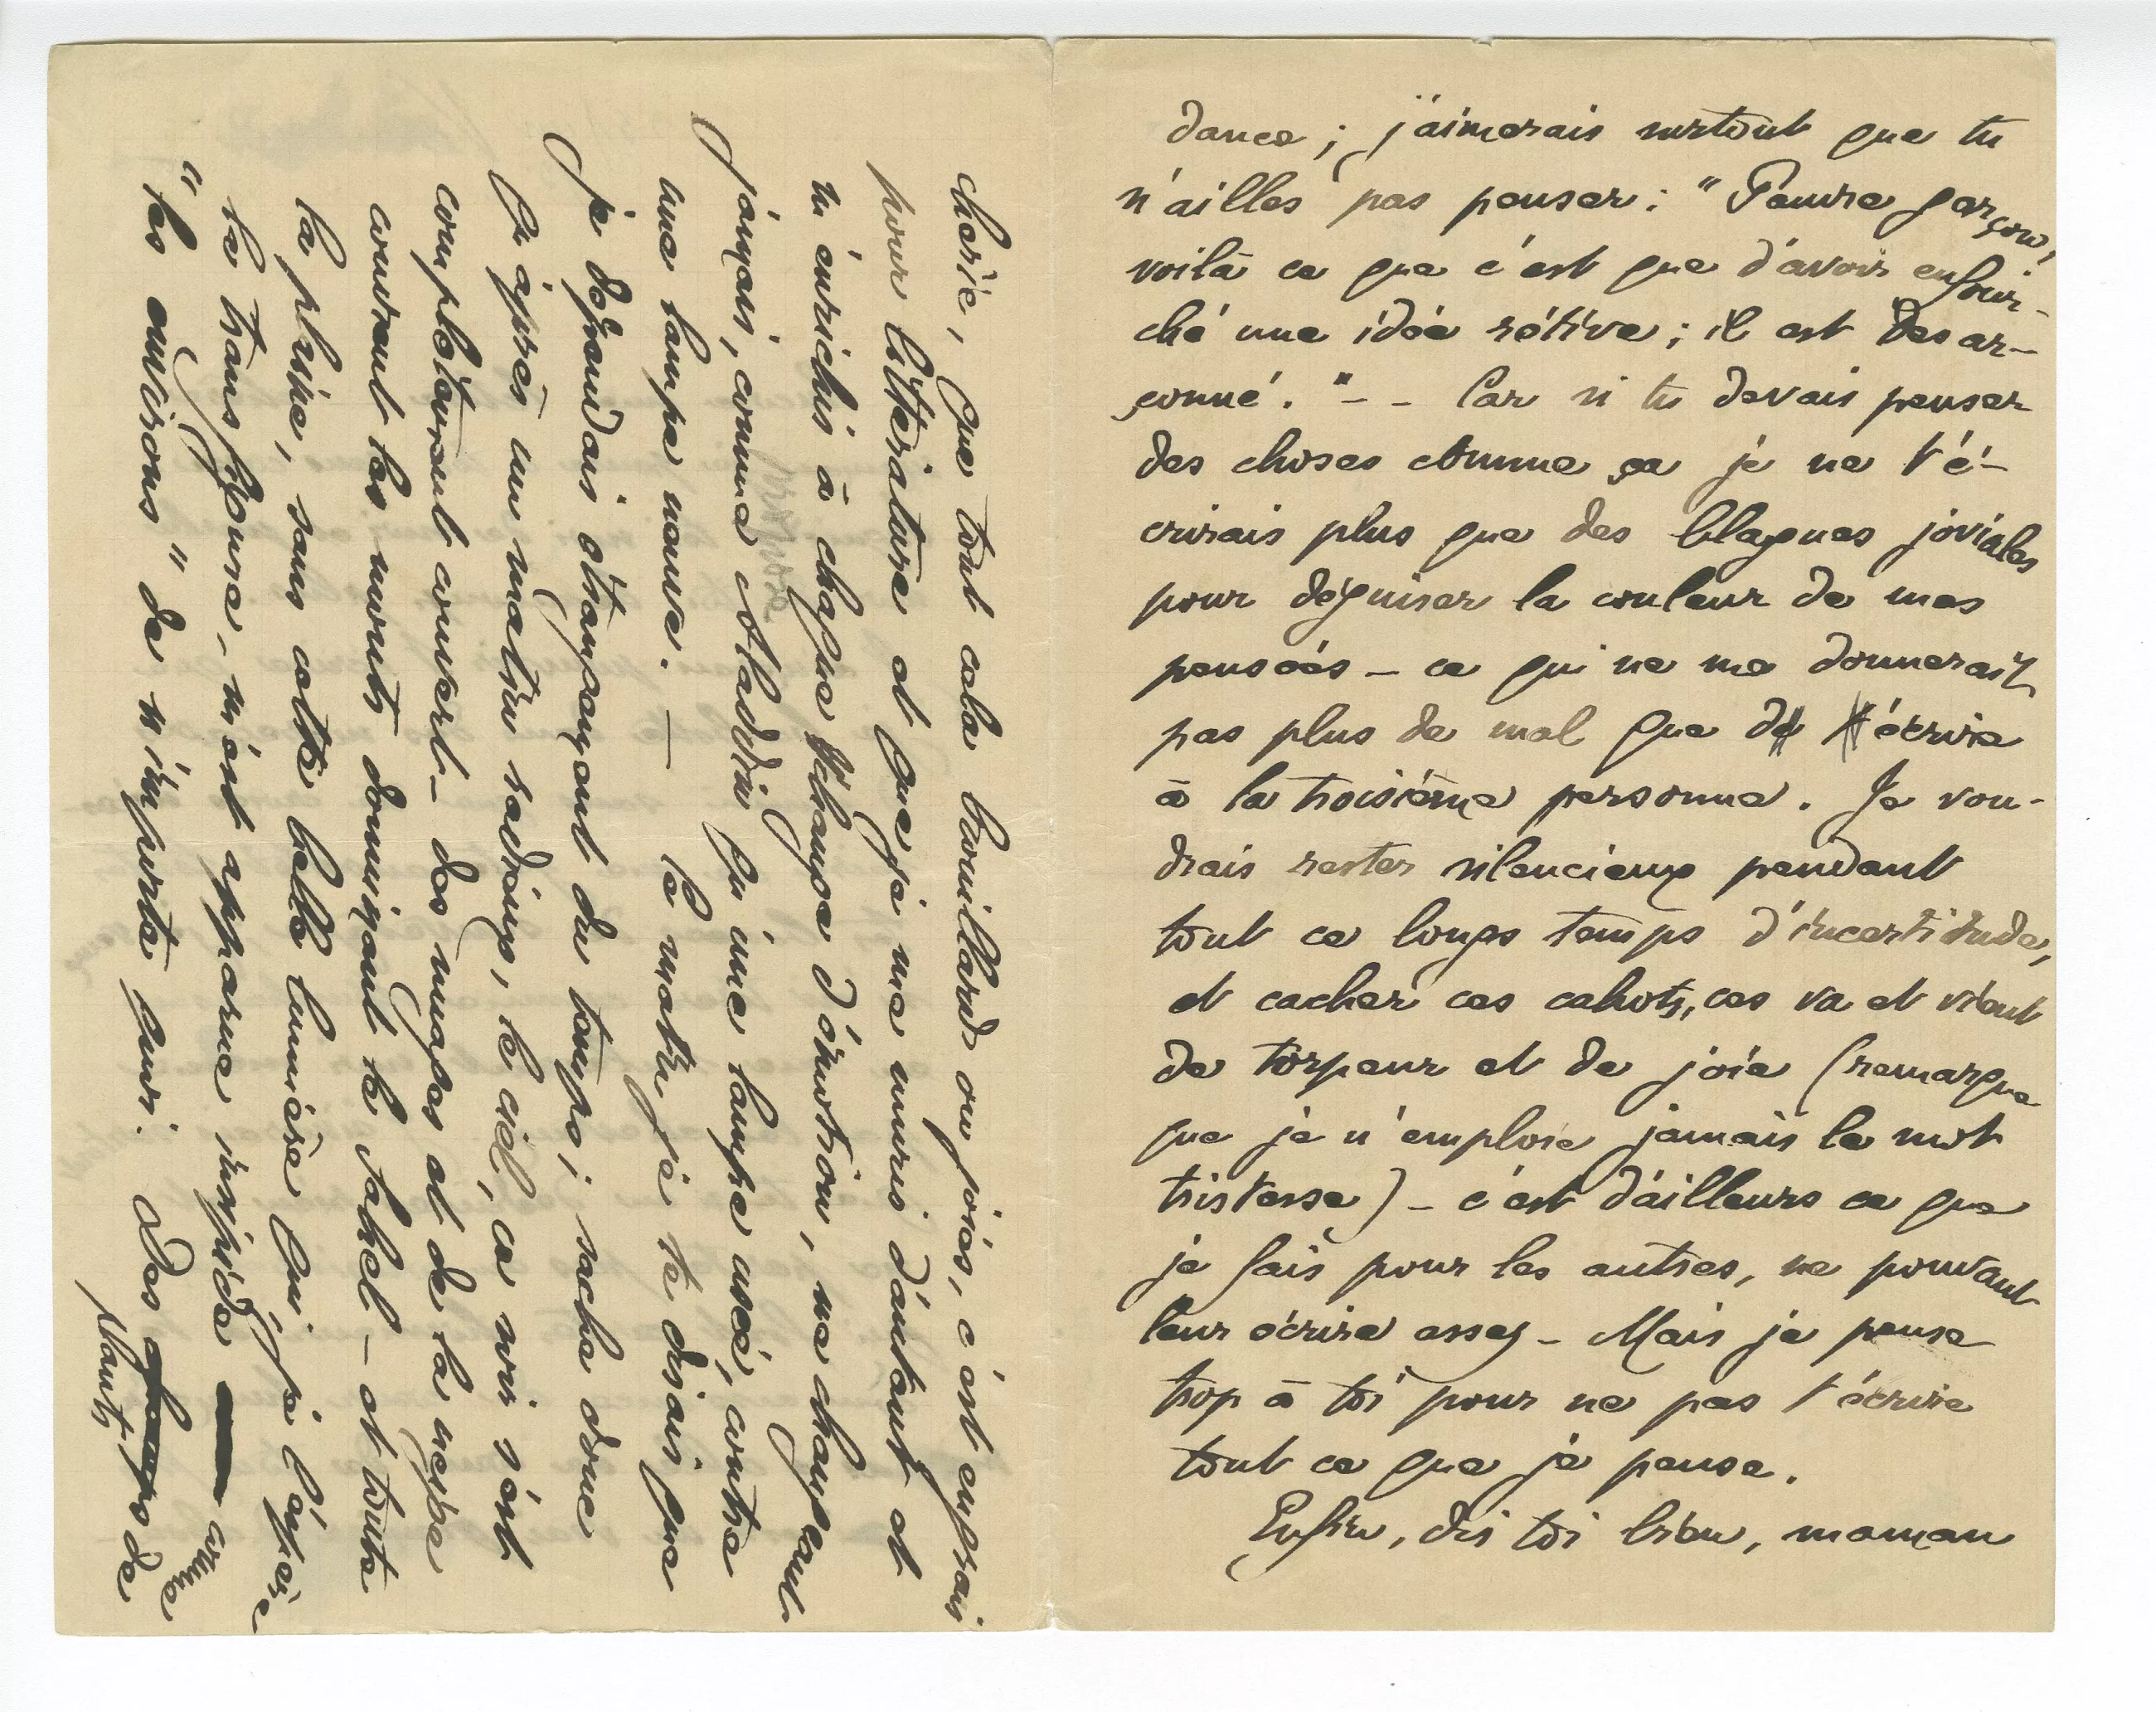 dance ; j'aimerais surtout que tu
n'ailles pas penser : " Pauvre garçon,
voilà ce que c'est que d'avoir enfour-
ché une idée rétive ; il est desar-
çonné. " - - Car si tu devais penser
des choses comme ça je ne t'é-
crirais plus que des blagues joviales
pour déguiser la couleur de mes
pensées - ce qui ne me donnerait
pas plus de mal que d' écrire
à la troisième personne. Je vou-
drais rester silencieux pendant
tout ce longs temps d'incertitude,
et cacher ces cahots, ces va et vient
de torpeur et de joie (remarque
que je n'emploie jamais le mot
tristesse) - c'est d'ailleurs ce que
je fais pour les autres, ne pouvant
leur écrire assez - Mais je pense
trop à toi pour ne pas t'écrire
tout ce que je pense.
Enfin, dis toi bien, maman
chérie, que tout cela brouillard ou joies, c'est engrais
pour littérature et que je me muris d'autant et
m'enrichis à chaque échange d'émotion, ne changeant
jamais, comme Aladdin qu'une lampe usée, contre
une lampe neuve. — Ce matin je te disais que
je dépendais étrangement du temps ; sache donc
qu'après un matin radieux, le ciel, ce soir s'est
complètement couvert - des nuages et de la neige
couvrent les monts dominant le Sahel - et toute
la plaine, sans cette belle lumière qui, je l'espère
la transfigure, m'est apparue insipide comme
" les environs " de n'importe quoi. Des champs de